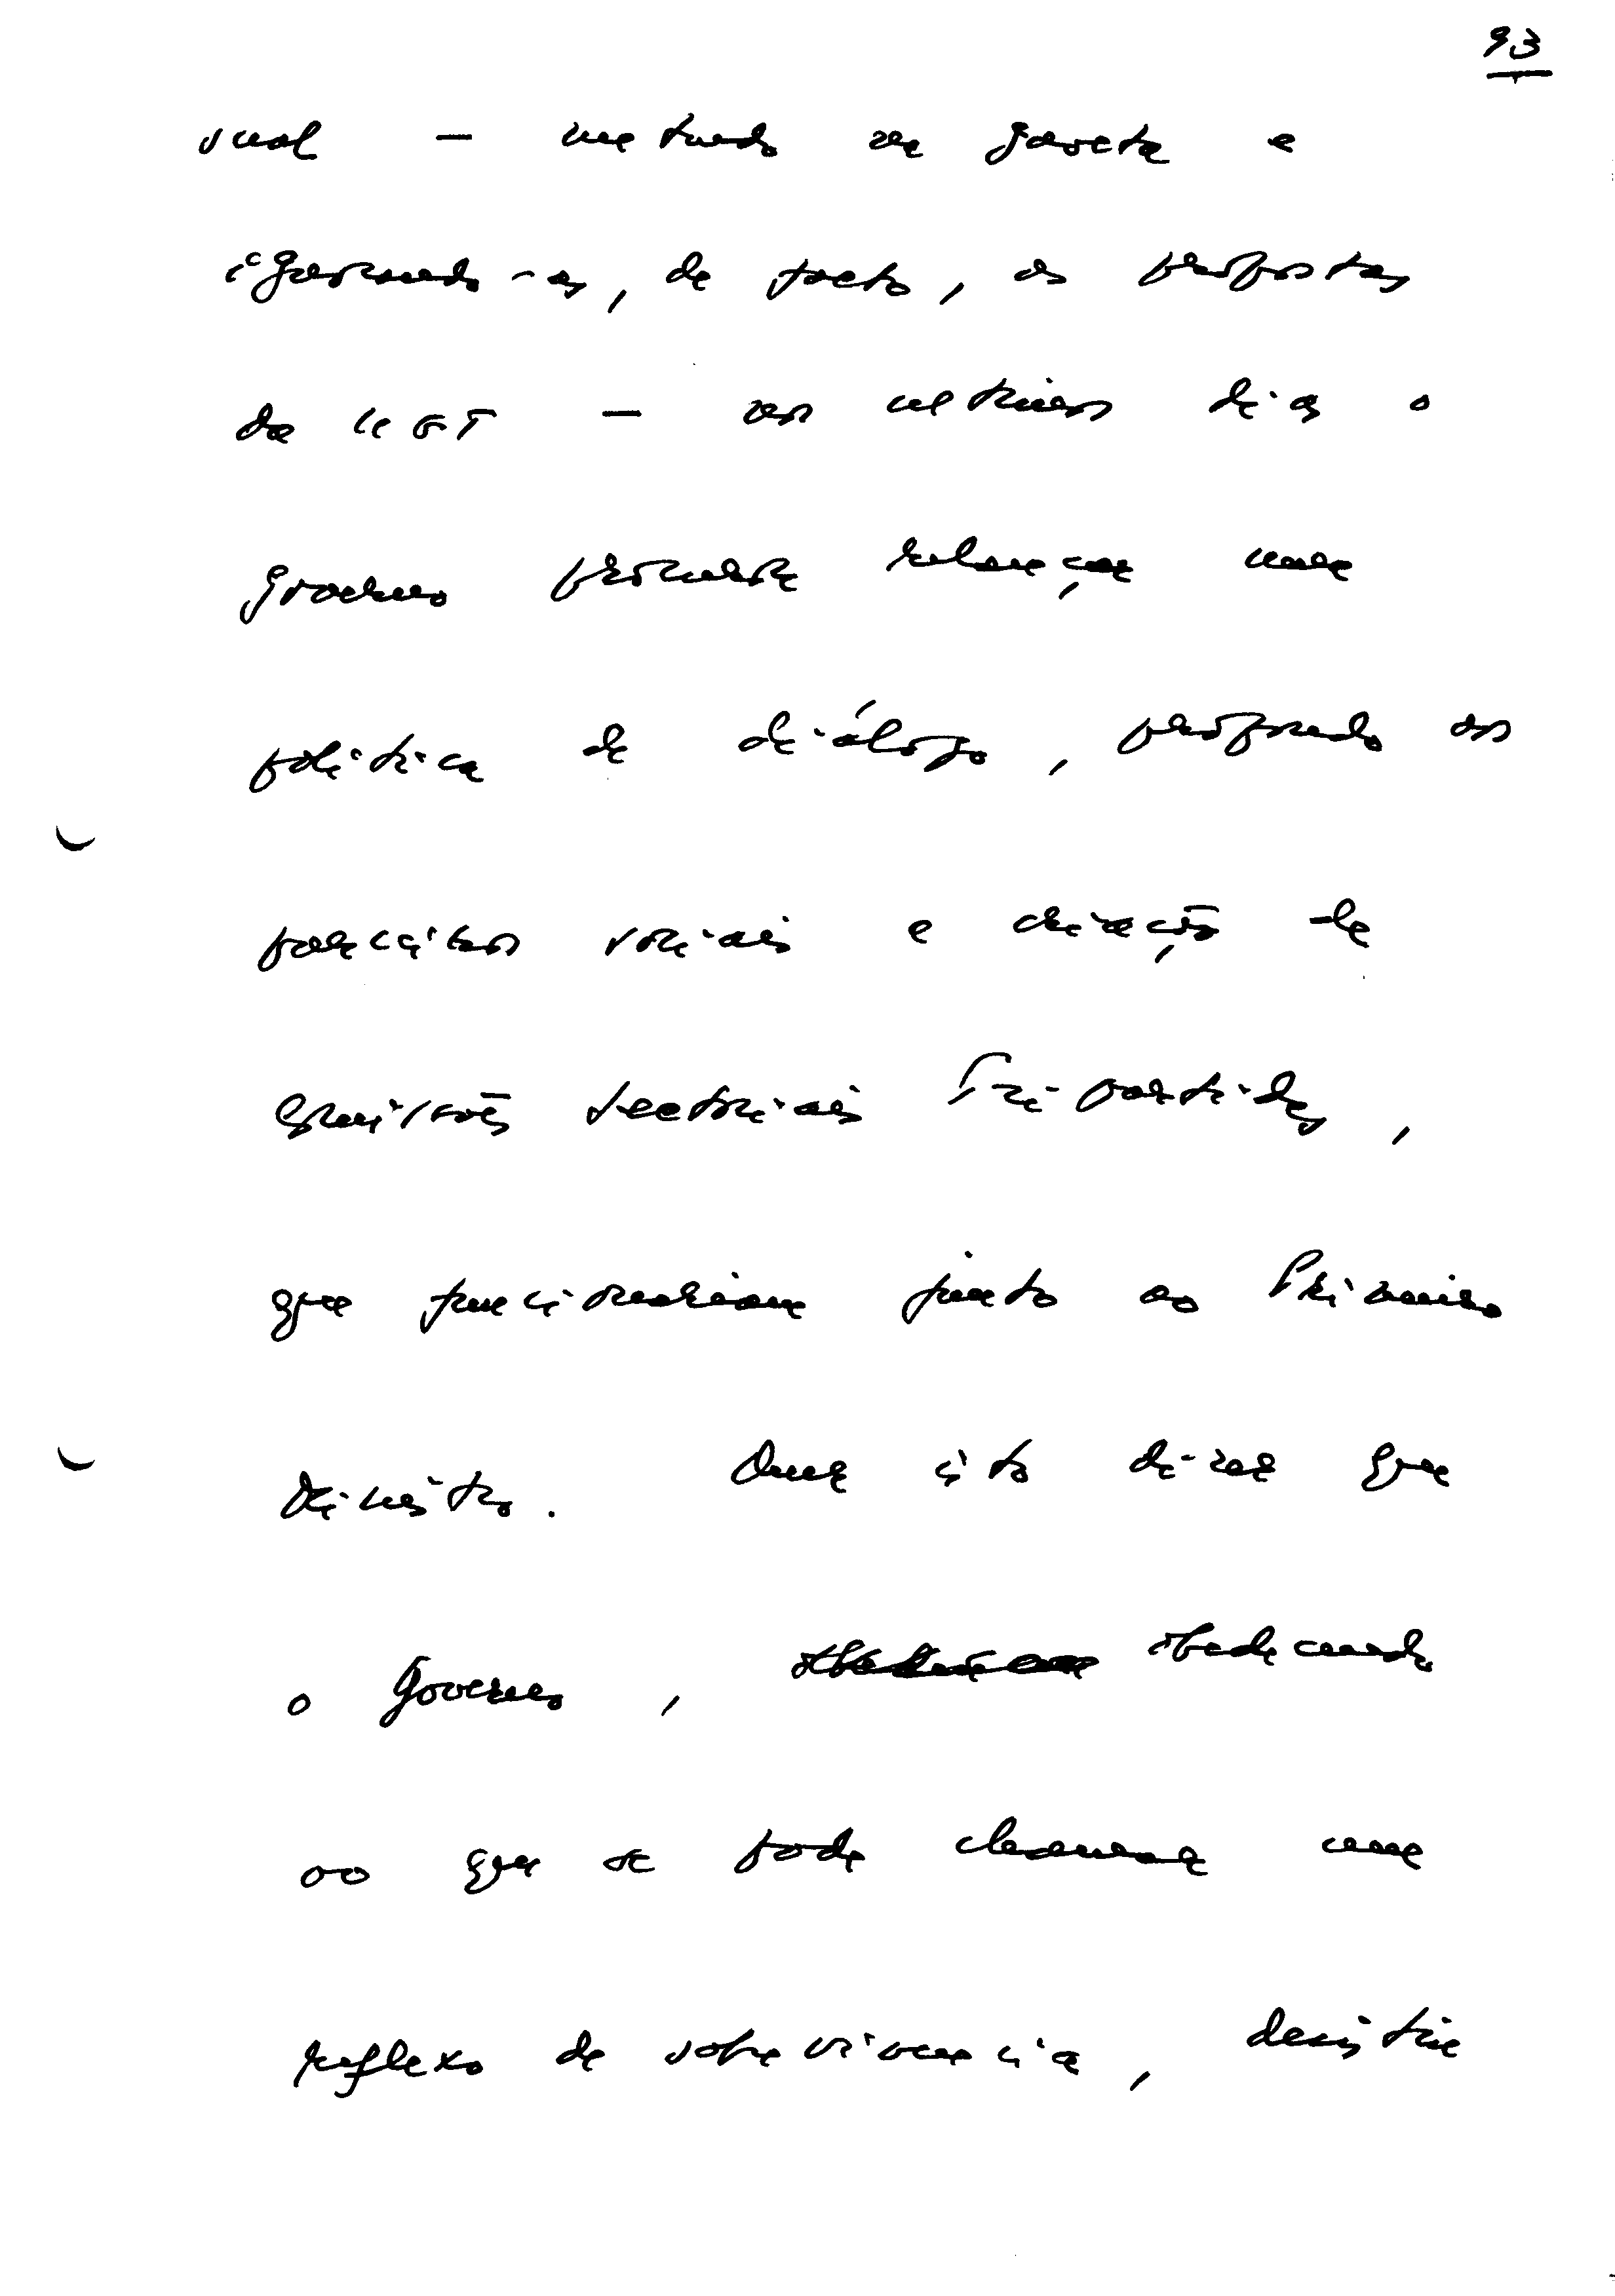 93
sual — metendo na gaveta e
ignorando-as, de facto, as propostas
da UGT — nos ultimos dias o
governo procurou relançar uma
politica de diálogo, propondo aos
parceiros sociais e criação de
comissões sectoriais Tripartidas,
que funcionariam junto ao Primeiro
Ministro. Quer isto dizer que
o Governo, obedecendo
ao que se pode chamar um
reflexo de sobrevivencia, desistiu